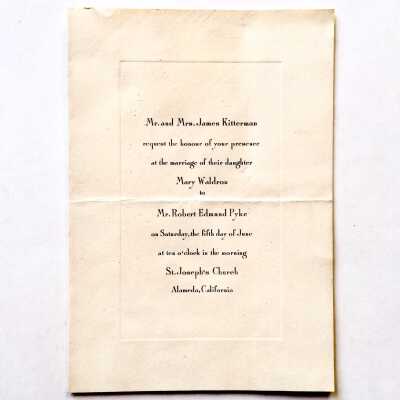 Mr. and Mrs. James Kitterman
request the honour of your presence
at the marriage of their daughter
Mary Waldron
to
Mr. Robert Edmund Pyke
on Saturday, the fifth day of June
at ten o'clock in the morning
St. Joseph's Church
Alameda, California